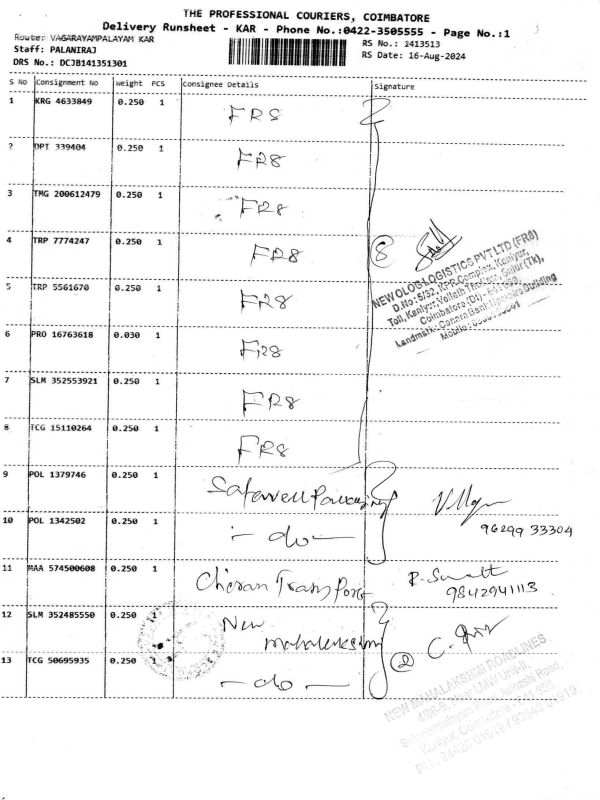 THE PROFESSIONAL COURIERS, COIMBATORE
Delivery Runsheet - KAR - Phone No.:0422-3505555 - Page No.:1
Route: VAGARAYAMPALAYAM KAR
RS No.: 1413513
Staff: PALANIRAJ
RS Date: 16-Aug-2024
DRS No.: DCJB141351301
S No Consignment No Weight PCS Consignee Details Signature
1 KRG 4633849 0.250 1 FR8
2 DPI 339404 0.250 1 FR8
3 TMG 200612479 0.250 1 FR8
4 TRP 7774247 0.250 1 FR8 8
NEW OLOG LOGISTICS PVT LTD (FR8)
D.No: 5/32, KPR Complex, Kaniyur,
Toll, Kaniyur Village, Sulur (Tk),
Coimbatore (Dt)
Landmark: Canara Bank Building
Mobile:
5 TRP 5561670 0.250 1 FR8
6 PRO 16763618 0.030 1 FR8
7 SLM 352553921 0.250 1 FR8
8 TCG 15110264 0.250 1 FR8
9 POL 1379746 0.250 1 Safewell Packaging
96299 33304
10 POL 1342502 0.250 1 - do -
11 MAA 574500608 0.250 1 Cheran Transport
9842941113
12 SLM 352485550 0.250 1 New mahalakshmi
2
13 TCG 50695935 0.250 1 - do -
NEW MAHALAKSHMI ROADLINES
Avinashi Road,
Kaniyur, Coimbatore